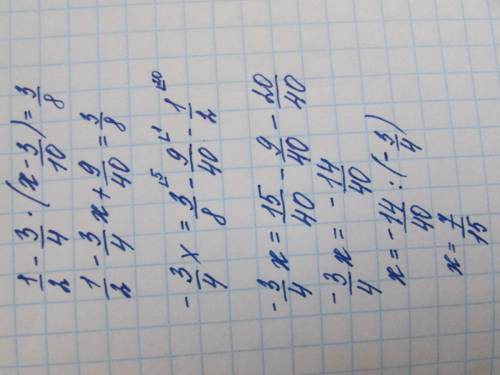 1/2 - 3/4 · (x - 3/10) = 3/8
1/2 - 3/4 x + 9/40 = 3/8
- 3/4 x = 3/8 ⌊5 - 9/40 ⌊1 - 1/2 ⌊20
- 3/4 x = 15/40 - 9/40 - 20/40
- 3/4 x = - 14/40
x = - 14/40 : (- 3/4)
x = 7/15